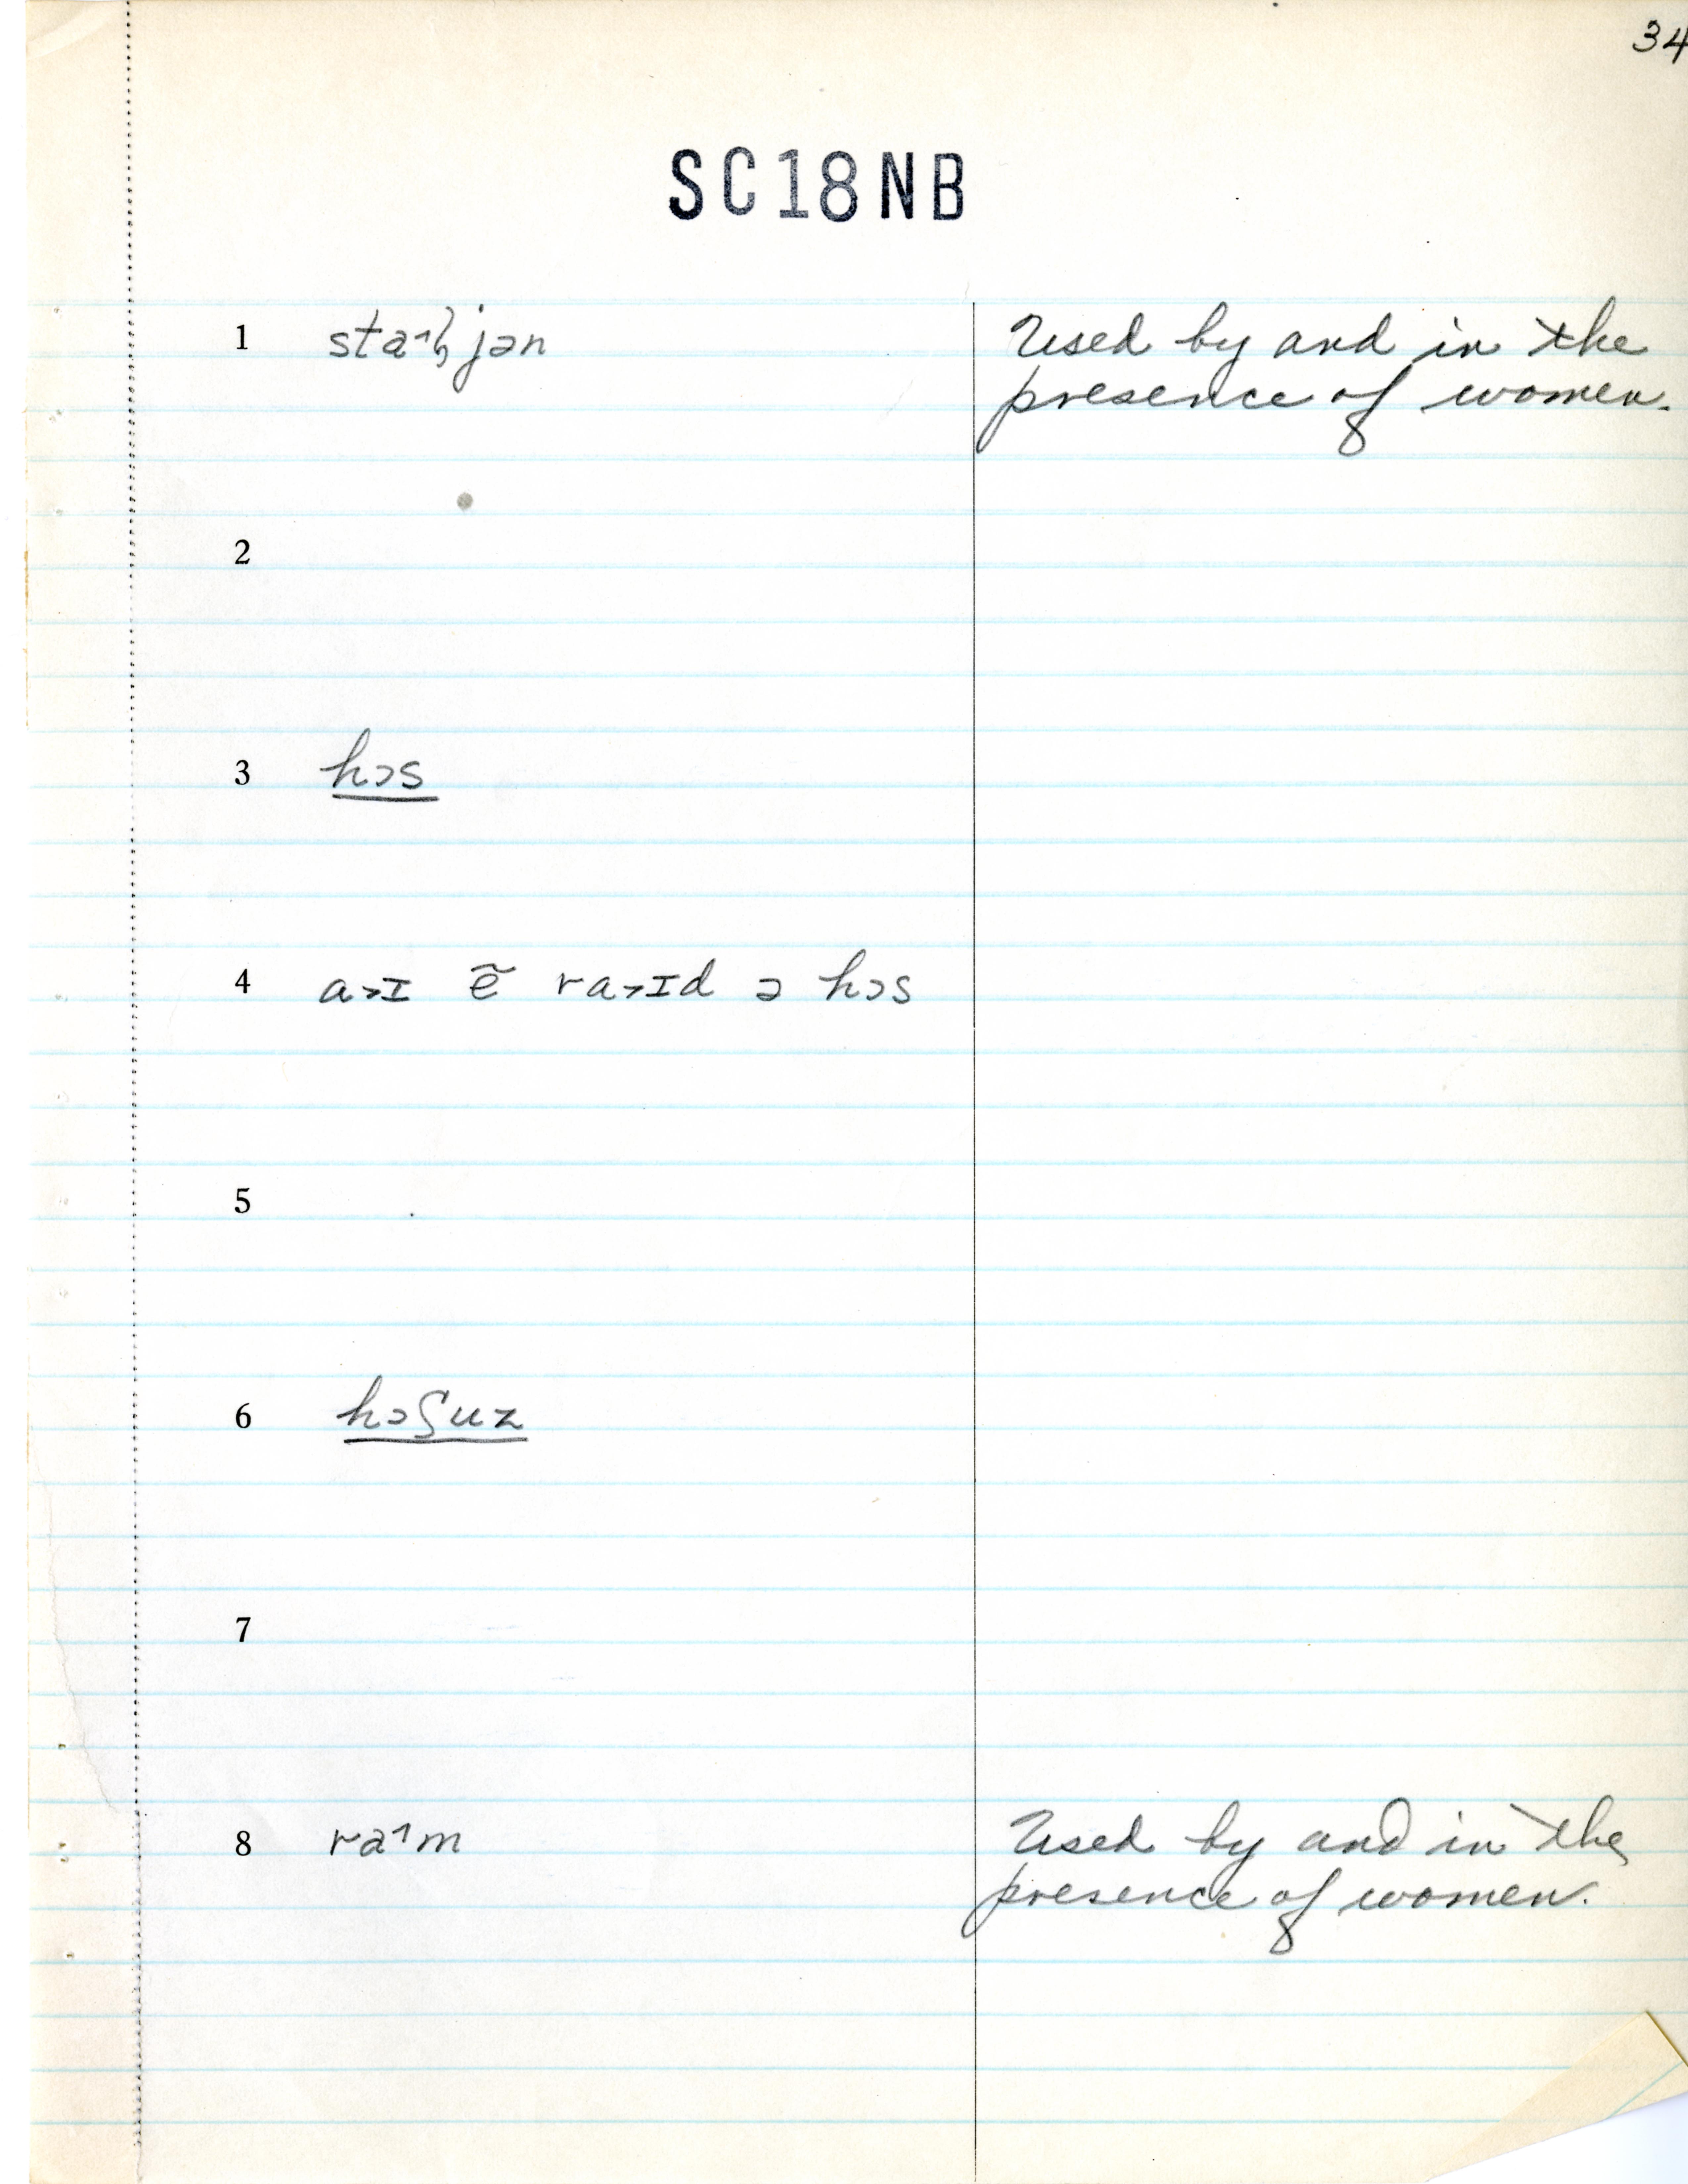 34
SC18NB
1 Used by and in the
presence of women.
2
3 hɔs
4 a˃ɪ ẽ ra˃ɪd ə hɔs
5
6 hɔʃuz
7
8 ra˄m Used by and in the
presence of women.